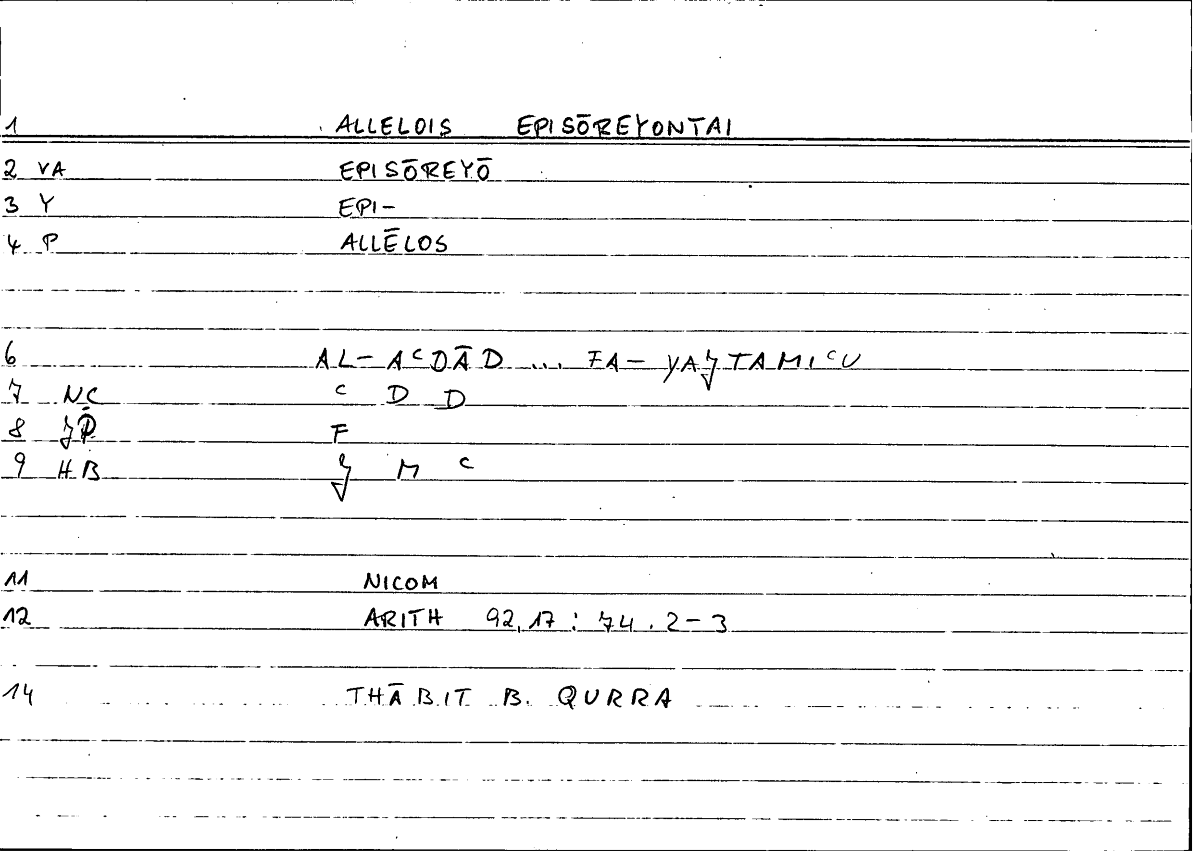 1 ALLELOIS EPISŌREYONTAI
2 VA EPISŌREYŌ
3 Y EPI-
4 P ALLĒLOS
6 AL-AᶜDĀD ... FA-YAJTAMIᶜU
7 NC ᶜ D D
8 F
9 HB J M ᶜ
11 NICOM
12 ARITH 92,17 : 74.2-3
14 THĀBIT B. QURRA